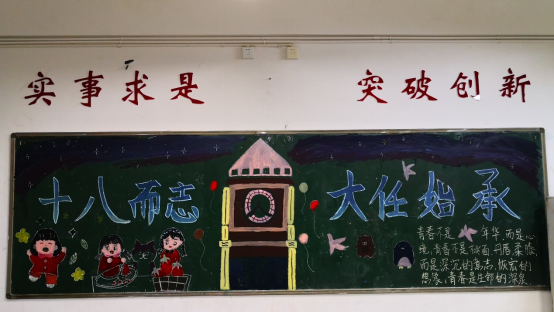 实事求是
突破创新
十八而志
大任始承
青春不是 年华,而是心
境,青春不是 面、丹唇、柔膝,
而是深沉的意志、恢宏的
想象,青春是生命的深泉